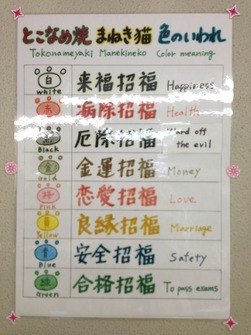 とこなめ焼 まねき猫 色のいわれ
Tokonameyaki Manekineko Color meaning
白 white 来福招福 Happiness
赤 病除招福 Health
黒 Black 厄除招福 Ward off the evil
金 Gold 金運招福 Money
Pink 恋愛招福 Love
黄 Yellow 良縁招福 Marriage
青 Blue 安全招福 Safety
緑 Green 合格招福 To pass exams